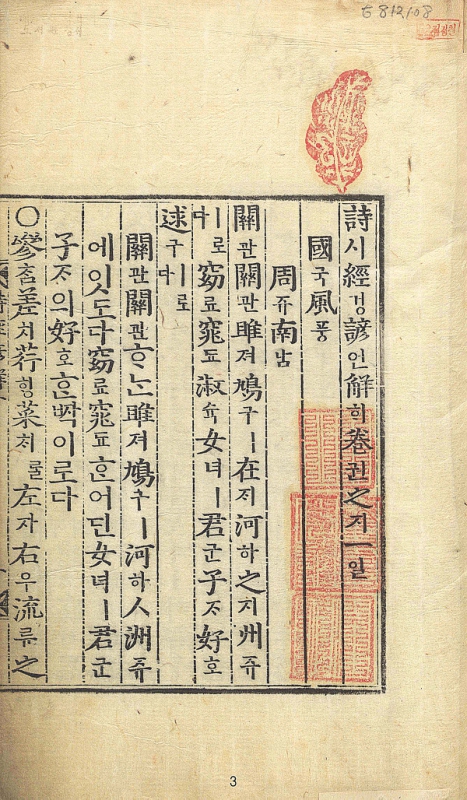 詩시經경諺언解ᄒᆡ卷권之지一일
國국風풍
周쥬南남
關관關관雎져鳩구ㅣ在ᄌᆡ河하之지洲쥬
ㅣ로다窈요窕됴淑슉女녀ㅣ君군子ᄌᆞ好호
逑구ㅣ로다
關관關관ᄒᆞᄂᆞᆫ雎져鳩구ㅣ河하人洲쥬
에잇도다窈요窕됴ᄒᆞᆫ어딘女녀ㅣ君군
子ᄌᆞ의好호ᄒᆞᆫᄧᅡᆨ이로다
○參참差치荇ᄒᆡᆼ菜ᄎᆡ를左자右우流류之
3